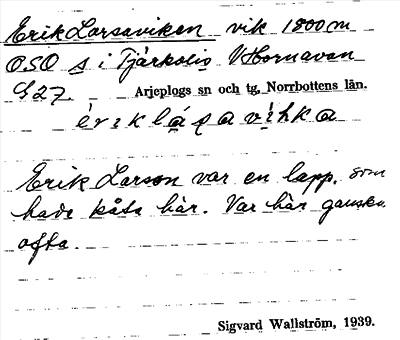 Erik Larsaviken vik 1800 m
OSO s i Tjärkolis V Hornavan
S27. Arjeplogs sn och tg, Norrbottens län.
Erik Larson var en lapp, som
hade kåta här. Var här ganska
ofta.
Sigvard Wallström, 1939.